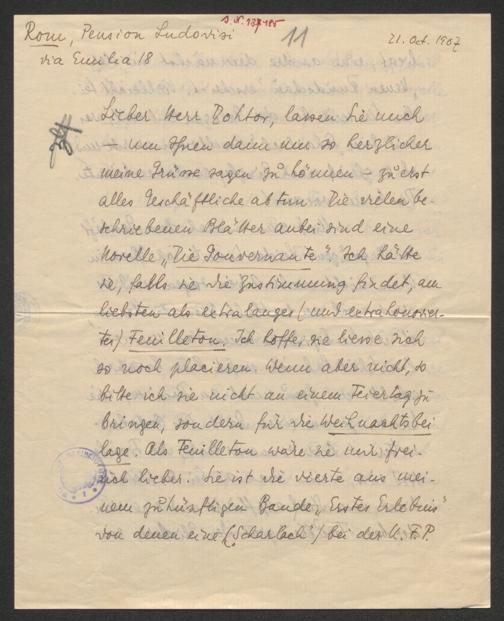 Rom, Pension Ludovisi
via Emilia 18
11
21. Oct. 1907
Lieber Herr Doktor, lassen Sie mich
– um Ihnen dann um so herzlicher
meine Grüsse sagen zu können – zuerst
alles Geschäftliche abtun. Die vielen be-
schriebenen Blätter anbei sind eine
Novelle „Die Gouvernante“. Ich hätte
sie, falls sie die Zustimmung findet, am
liebsten als extralanges (und extrahonorier-
tes) Feuilleton. Ich hoffe, sie liesse sich
so noch placieren. Wenn aber nicht, so
bitte ich sie nicht an einem Feiertag zu
bringen, sondern für die Weihnachtsbei
lage. Als Feuilleton wäre sie mir frei-
lich lieber. Sie ist die vierte aus mei-
nem zukünftigen Bande „Erstes Erlebnis“
von denen eine („Scharlach“) bei der N. F. P.